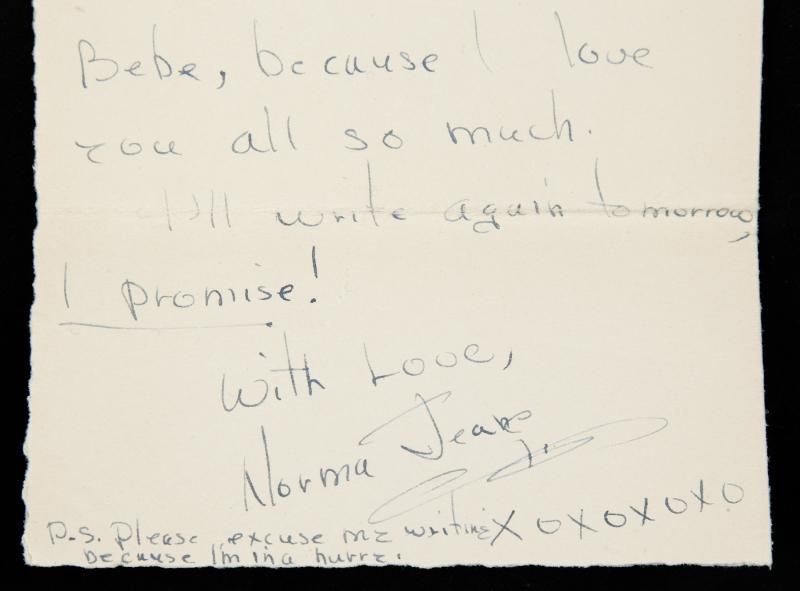 Bebe, because I love
you all so much.
I'll write again tomorrow,
I promise!
With Love,
Norma Jeane
P.S. Please excuse me writing XOXOXOXO
because I'm in a hurre.